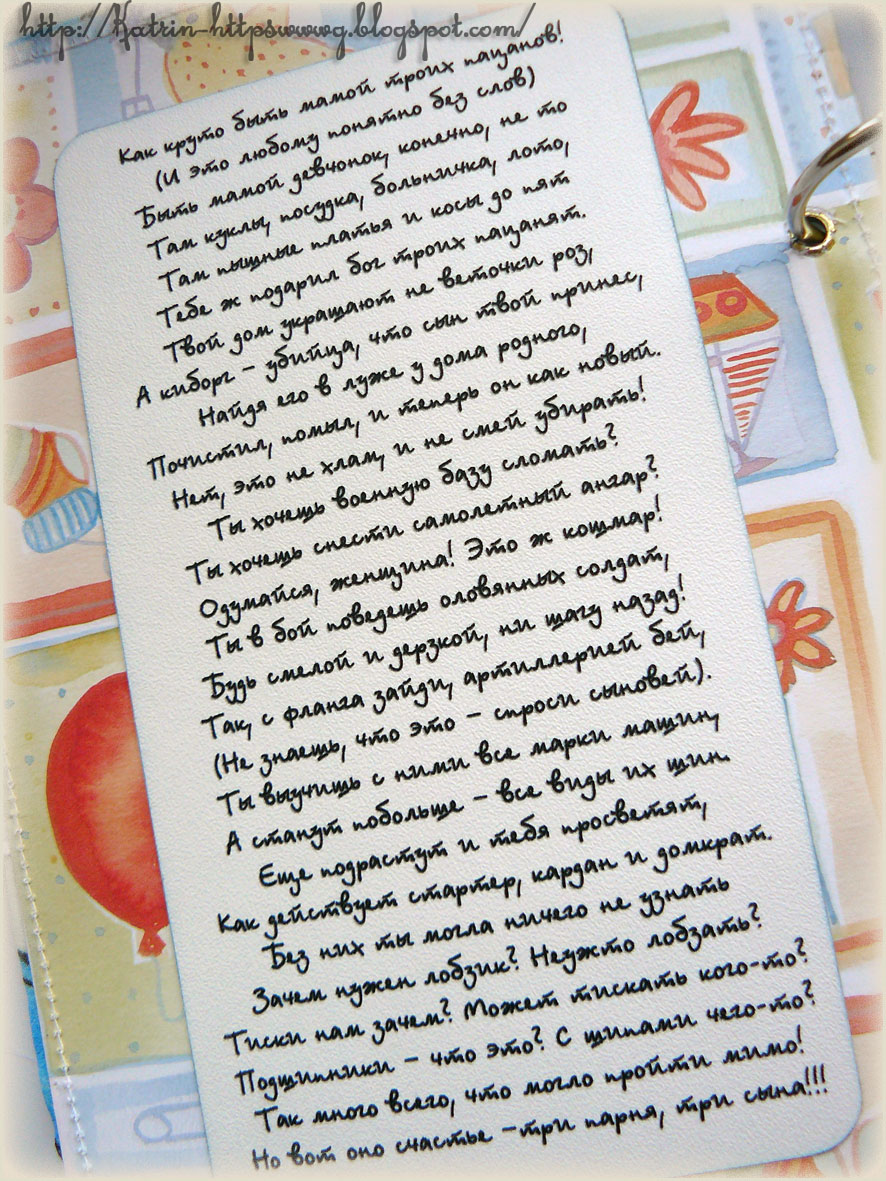 http://Katrin-httpswwwg.blogspot.com/
Как круто быть мамой троих пацанов!
(И это любому понятно без слов)
Быть мамой девчонок, конечно, не то
Там куклы, посудка, больничка, лото,
Там пышные платья и косы до пят
Тебе ж подарил бог троих пацанят.
Твой дом украшают не веточки роз,
А киборг - убийца, что сын твой принес,
Найдя его в луже у дома родного,
Почистил, помыл, и теперь он как новый.
Нет, это не хлам, и не смей убирать!
Ты хочешь военную базу сломать?
Ты хочешь снести самолетный ангар?
Одумайся, женщина! Это ж кошмар!
Ты в бой поведешь оловянных солдат,
Будь смелой и дерзкой, ни шагу назад!
Так, с фланга зайди, артиллерией бей,
(Не знаешь, что это - спроси сыновей).
Ты выучишь с ними все марки машин,
А станут побольше - все виды их шин.
Еще подрастут и тебя просветят,
Как действует стартер, кардан и домкрат.
Без них ты могла ничего не узнать
Зачем нужен лобзик? Неужто лобзать?
Тиски нам зачем? Может тискать кого-то?
Подшипники - что это? С шипами чего-то?
Так много всего, что могло пройти мимо!
Но вот оно счастье -три парня, три сына!!!